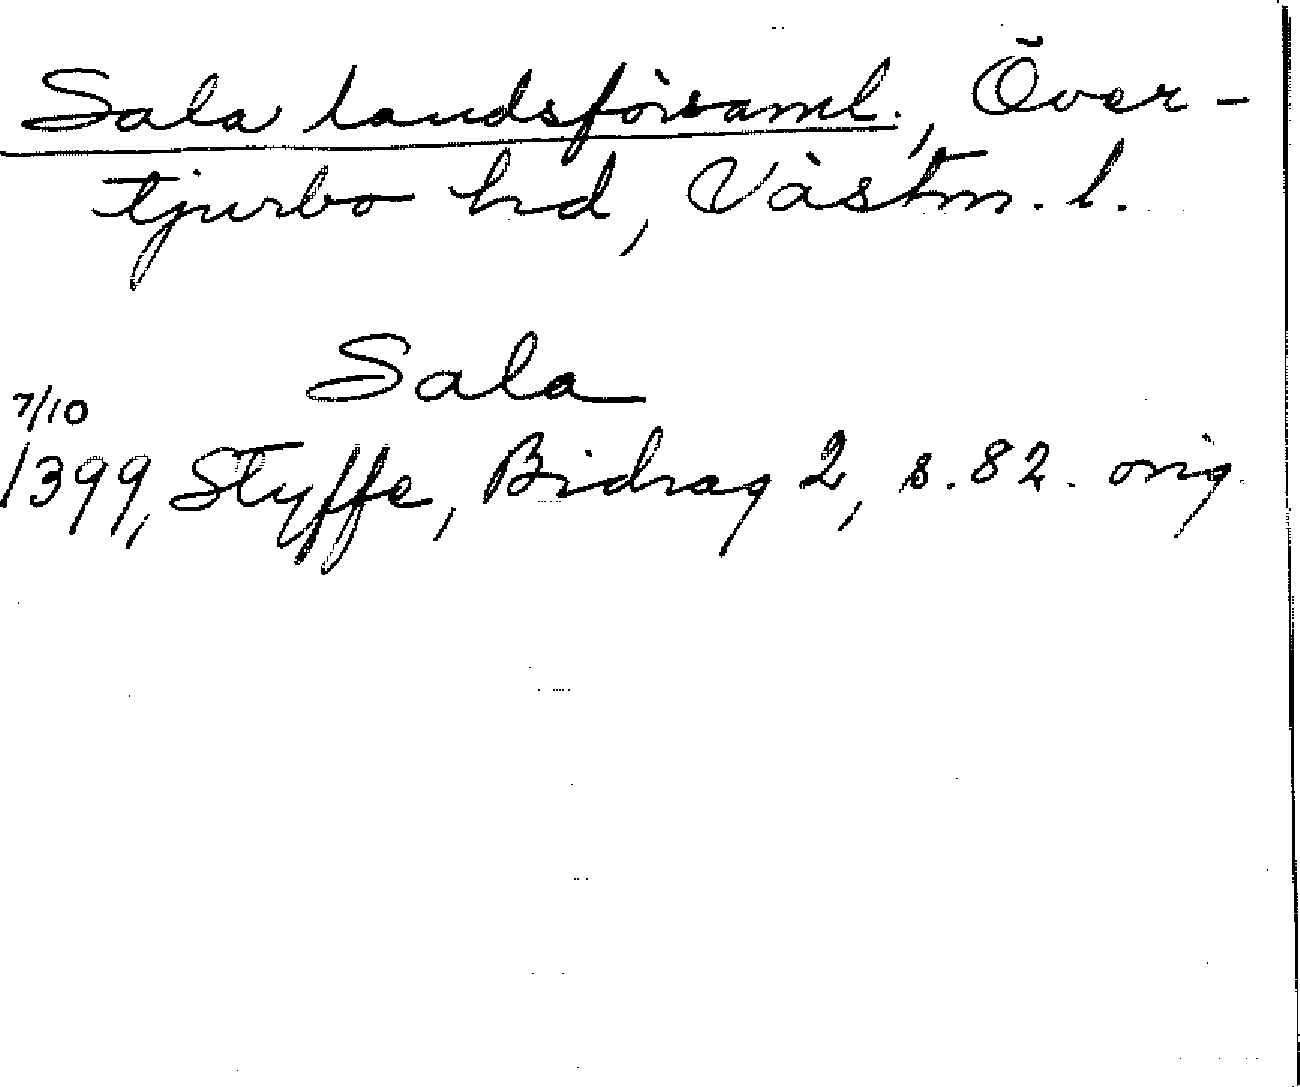 Sala landsförsaml., Över-
tjurbo hd, Västm. l.
Sala
7/10
1399, Styffe, Bidrag 2, s. 82. orig.